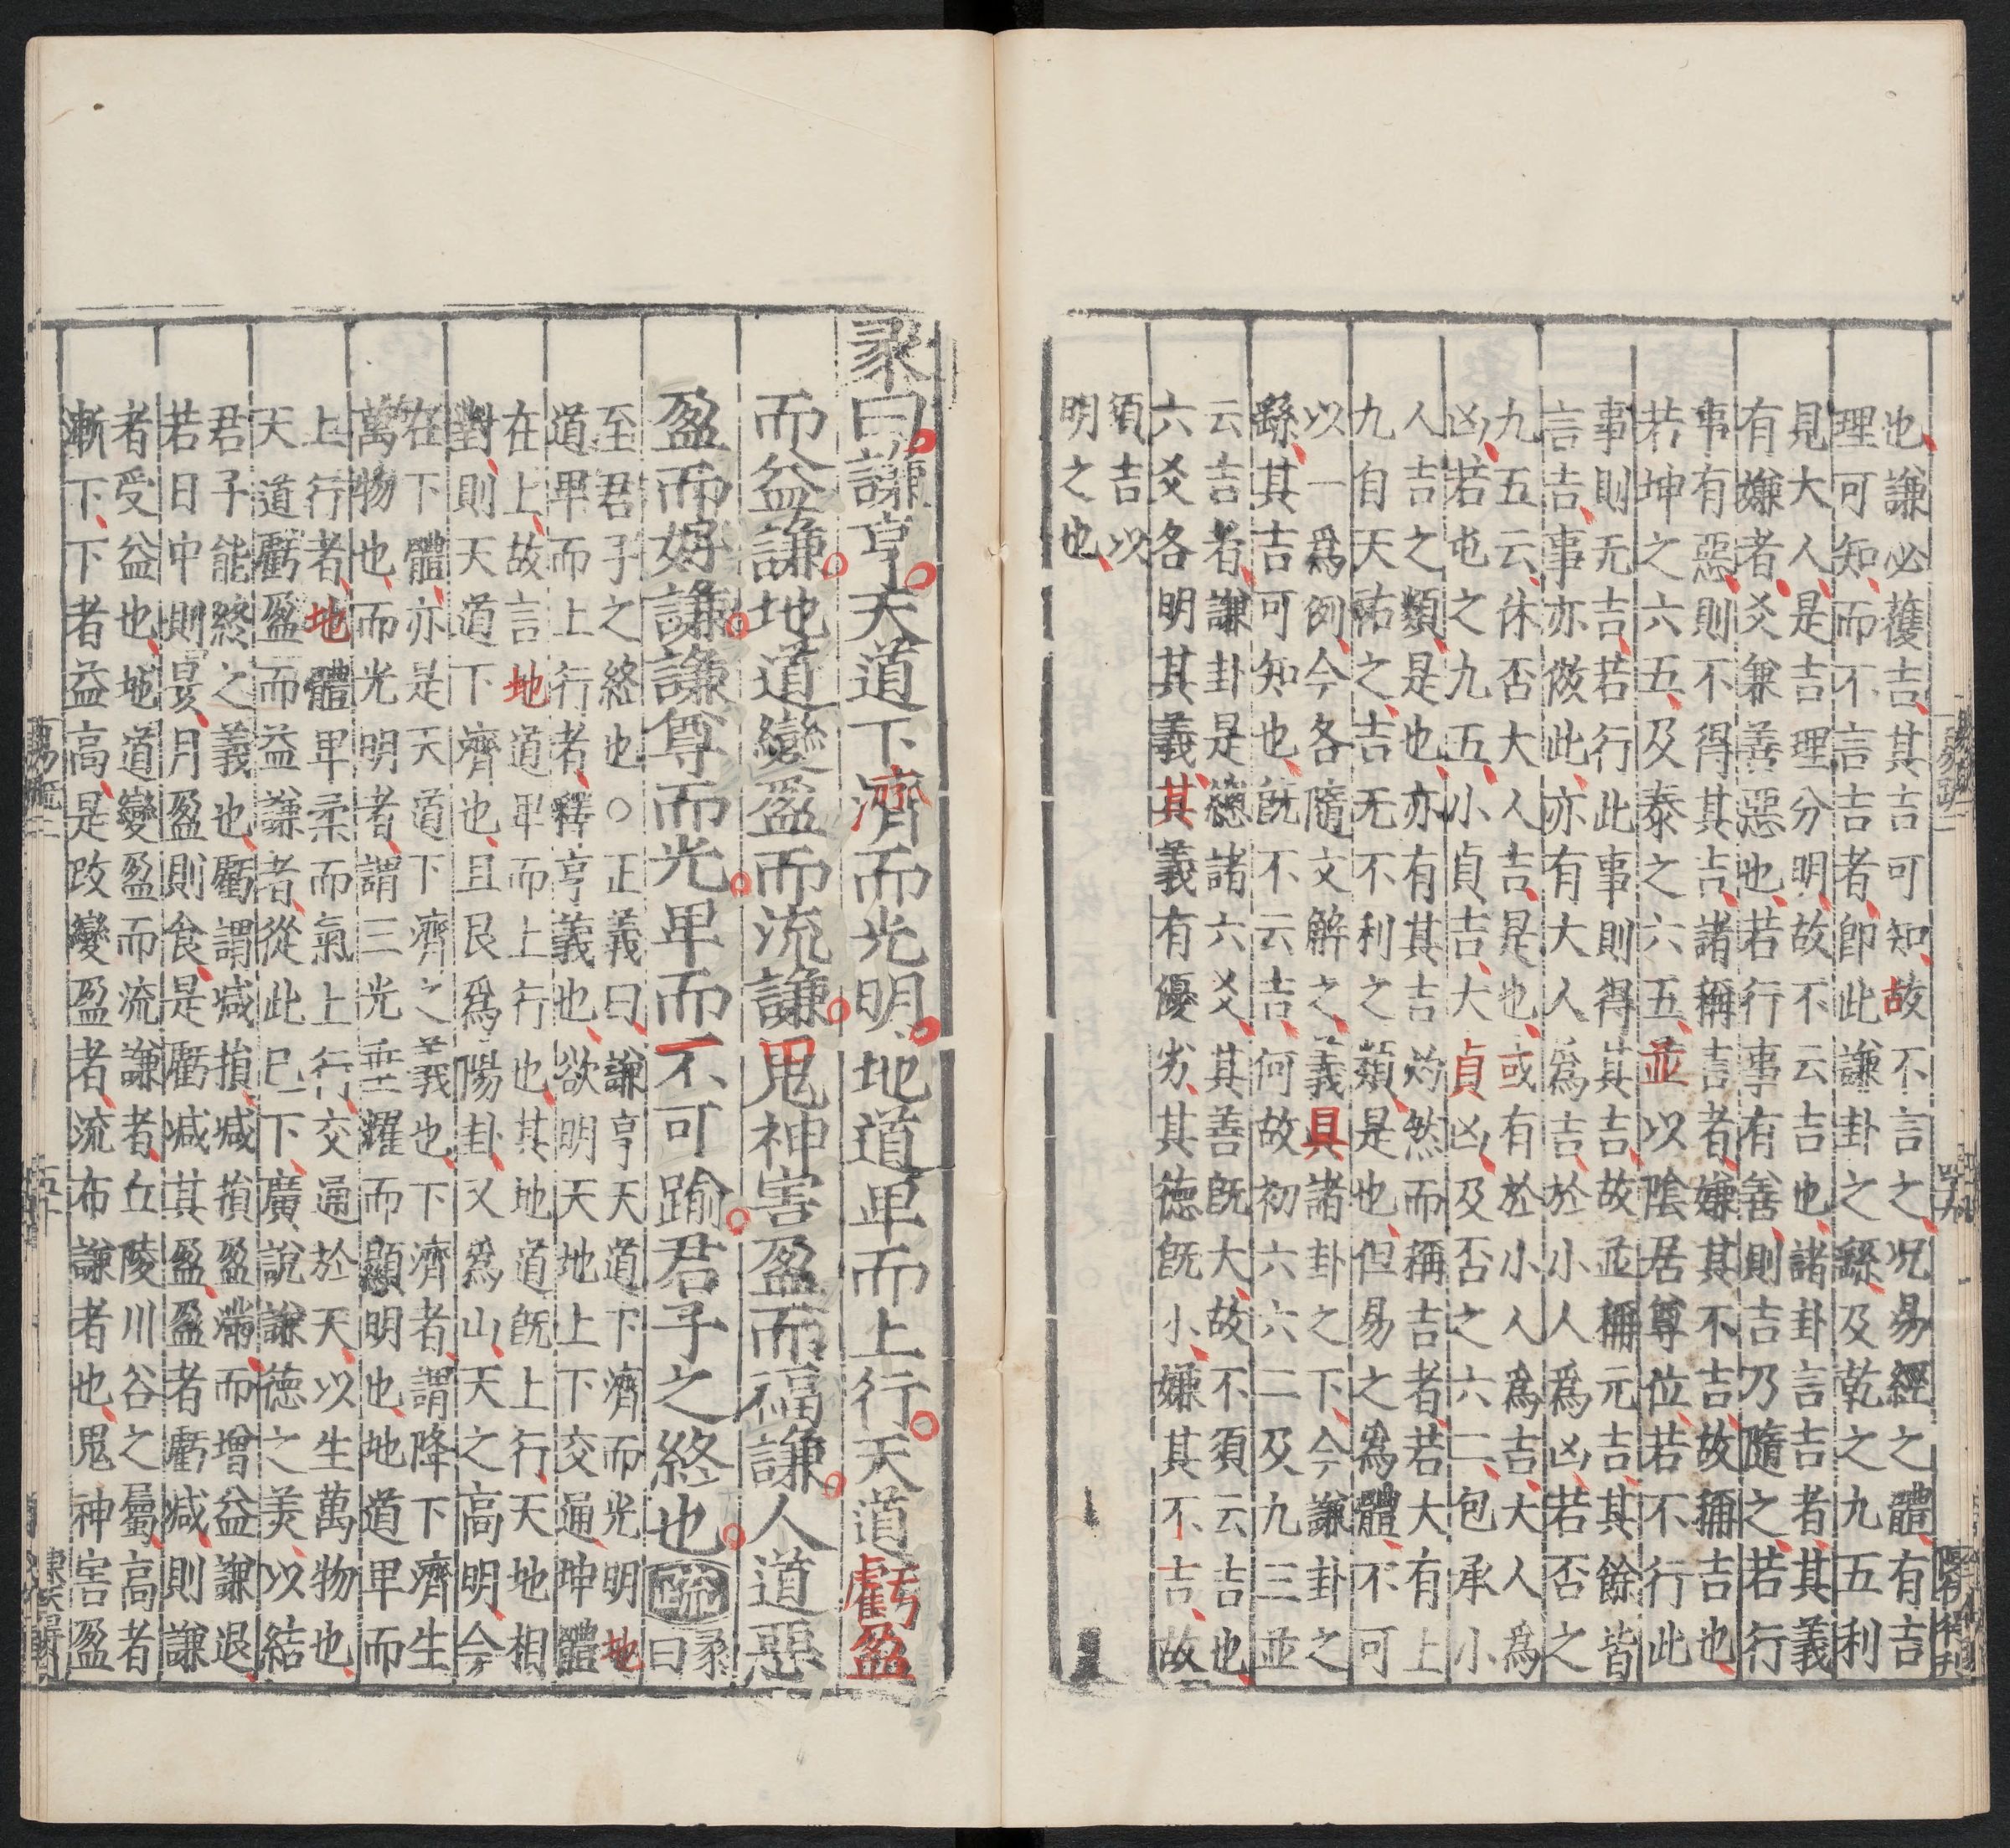 也謙必獲吉其吉可知故不言之况易經之體有吉
理可知而不言吉者即此謙卦之繇及乾之九五利
見大人是吉理分明故不云吉也諸卦言吉者其義
有嫌者爻兼善惡也若行事有善則吉乃隨之若行
事有惡則不得其吉諸稱吉者嫌其不吉故稱吉也
若坤之六五及泰之六五並以隂居尊位若不行此
事則无吉若行此事則得其吉故並稱元吉其餘皆
言吉事亦倣此亦有大人爲吉於小人爲凶若否之
九五云休否大人吉是也或有於小人爲吉大人爲
凶若屯之九五小貞吉大貞凶及否之六二包承小
人吉之類是也亦有其吉灼然而稱吉者若大有上
九自天祐之吉无不利之類是也但易之為體不可
以一爲例今各隨文解之義具諸卦之下今謙卦之
繇其吉可知也既不云吉何故初六六二及九三並
云吉者謙卦是總諸六爻其善既大故不須云吉也
六爻各明其義其義有優劣其德既小嫌其不吉故
須吉以
明之也
彖曰謙亨天道下濟而光明地道卑而上行天道虧盈
而益謙地道變盈而流謙鬼神害盈而福謙人道惡
盈而好謙謙尊而光卑而不可踰君子之終也 疏 彖
曰
至君子之終也○正義曰謙亨天道下濟而光明地
道卑而上行者釋亨義也欲明天地上下交通坤體
在上故言地道卑而上行也其地道既上行天地相
對則天道下濟也且艮爲陽卦又爲山天之高明今
在下體亦是天道下濟之義也下濟者謂降下濟生
萬物也而光明者謂三光垂耀而顯明也地道卑而
上行者地體卑柔而氣上行交通於天以生萬物也
天道虧盈而益謙者從此已下廣說謙德之美以結
君子能終之義也虧謂減損減損盈滿而增益謙退
若日中則昃月盈則食是虧減其盈盈者虧減則謙
者受益也地道變盈而流謙者丘陵川谷之屬高者
漸下下者益高是改變盈者流布謙者也鬼神害盈